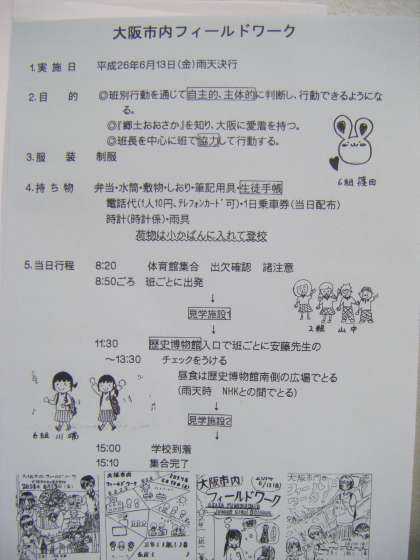 大阪市内フィールドワーク
1.実施日　平成26年6月13日(金)雨天決行
2.目　的　◎班別行動を通じて自主的、主体的に判断し、行動できるようにな
る。
◎『郷土おおさか』を知り、大阪に愛着を持つ。
◎班長を中心に班で協力して行動する。
3.服　装　制服
6組
4.持ち物　弁当・水筒・敷物・しおり・筆記用具・生徒手帳
電話代(1人10円、テレフォンカード可)・1日乗車券(当日配布)
時計(時計係)・雨具
荷物は小かばんに入れて登校
5.当日行程　8:20　体育館集合　出欠確認　諸注意
8:50ごろ　班ごとに出発
↓
見学施設1
↓
2組　山中
11:30　歴史博物館入口で班ごとに安藤先生の
～13:30　チェックをうける
昼食は歴史博物館南側の広場でとる
(雨天時　NHKとの間でとる)
↓
見学施設2
↓
6組　川端
15:00　学校到着
15:10　集合完了
大阪市内
フィールドワーク
大阪市内
フィールドワーク